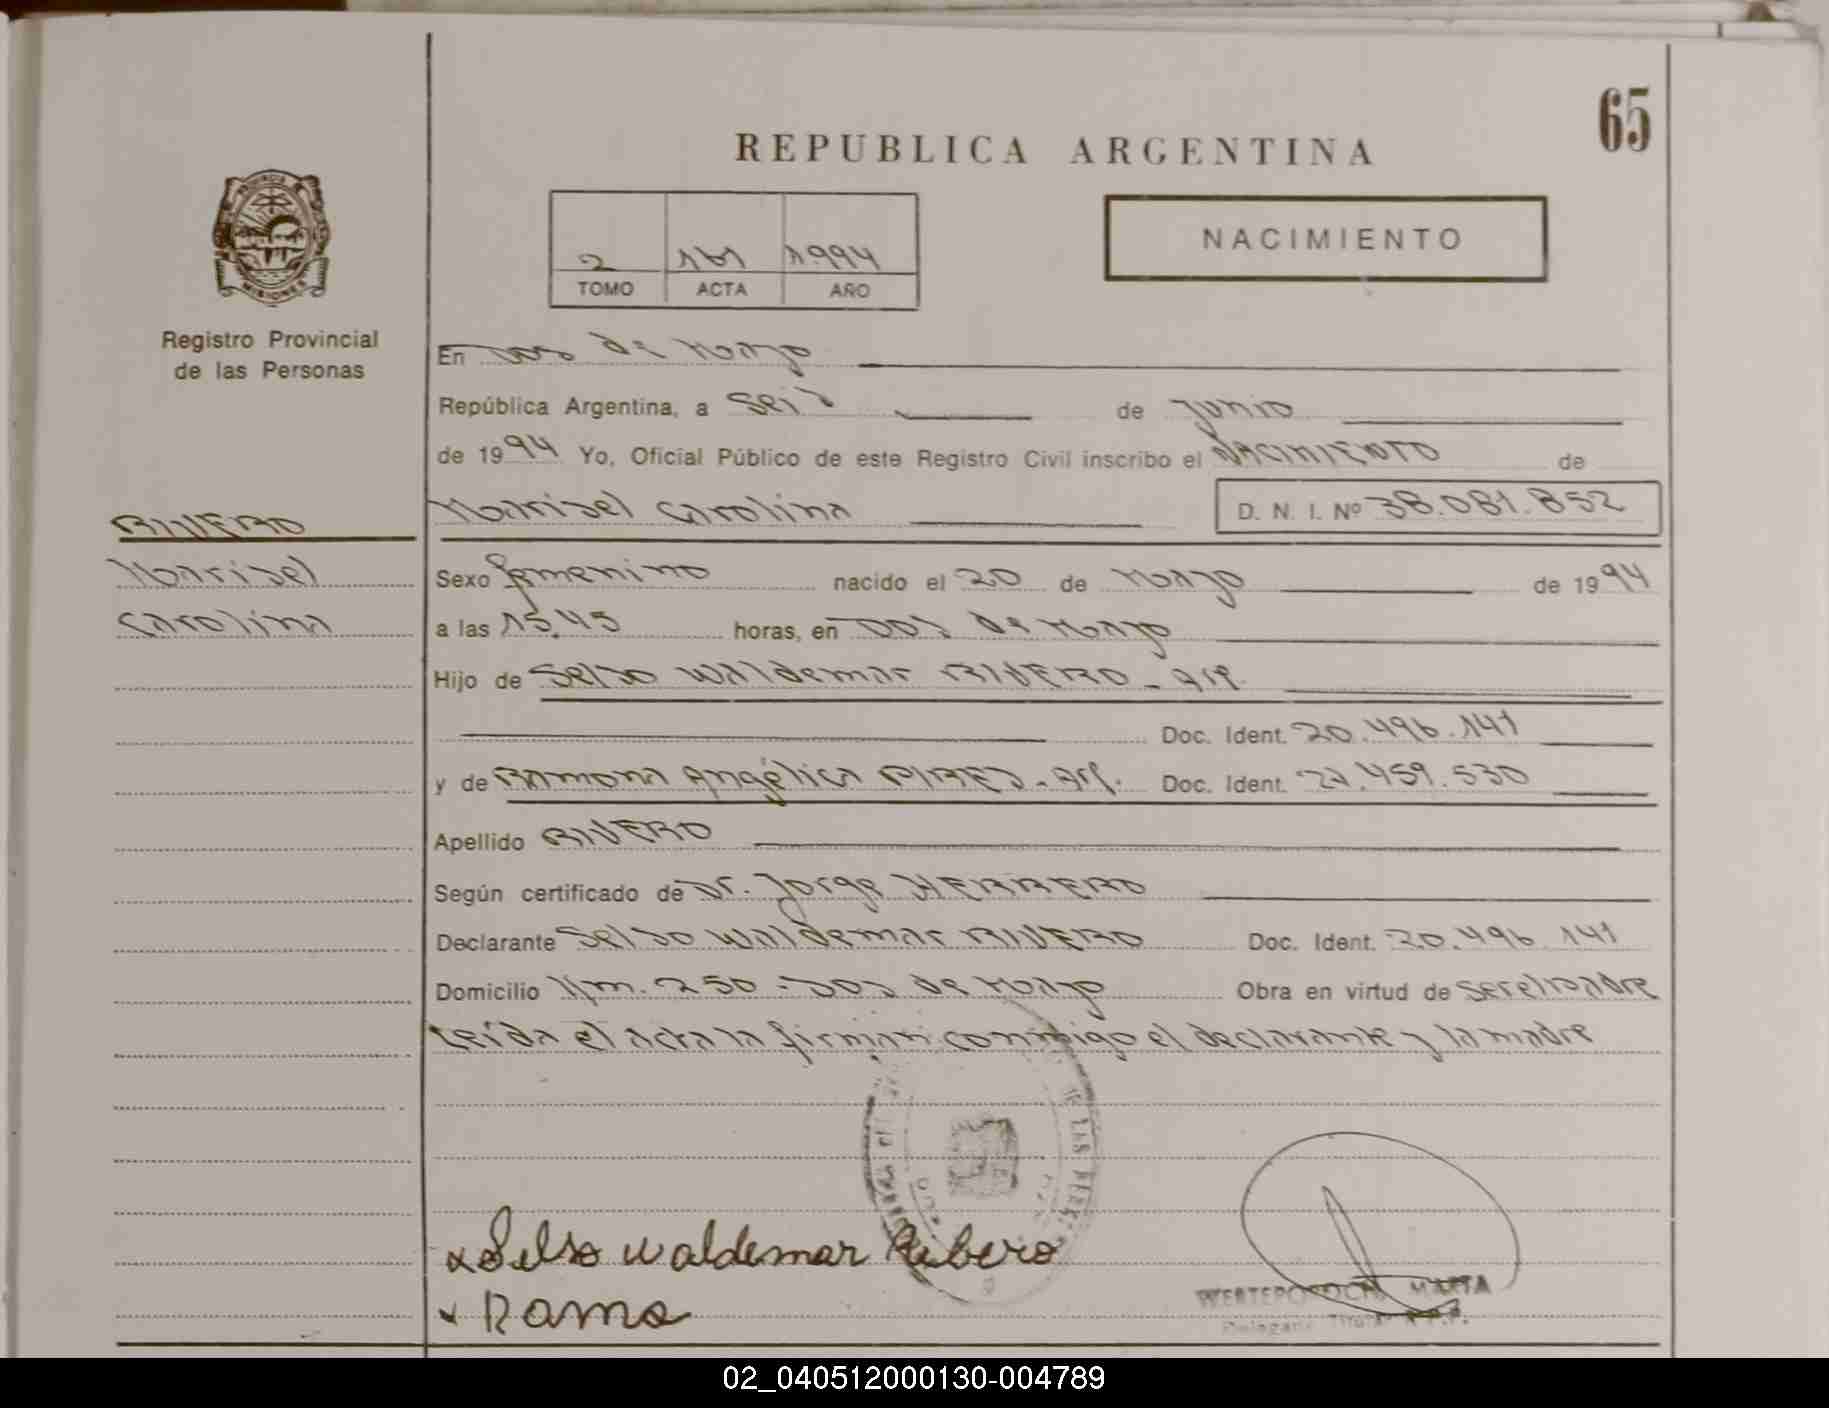 65
REPUBLICA ARGENTINA
PROVINCIA DE
MISIONES
Registro Provincial
de las Personas
2 161 1994
TOMO ACTA AÑO
NACIMIENTO
En Dos de Mayo
República Argentina, a seis de Junio
de 1994 Yo, Oficial Público de este Registro Civil inscribo el NACIMIENTO de
Marisel Carolina D. N. I. Nº 38.081.852
RIVERO
Marisel
Carolina
Sexo femenino nacido el 20 de Mayo de 1994
a las 15,45 horas, en Dos de Mayo
Hijo de Selso Waldemar RIVERO - Arg.
Doc. Ident. 20.496.141
y de Ramona Angélica PIRES - Arg. Doc. Ident. 27.459.530
Apellido RIVERO
Según certificado de Dr. Jorge HERRERO
Declarante Selso Waldemar RIVERO Doc. Ident. 20.496.141
Domicilio Km. 250 - Dos de Mayo Obra en virtud de ser el padre
Leída el acta la firman conmigo el declarante y la madre
DE LAS PERS
x Selso Waldemar Ribero
x Ramo
MARTA
Titular R.P.P.
02_040512000130-004789